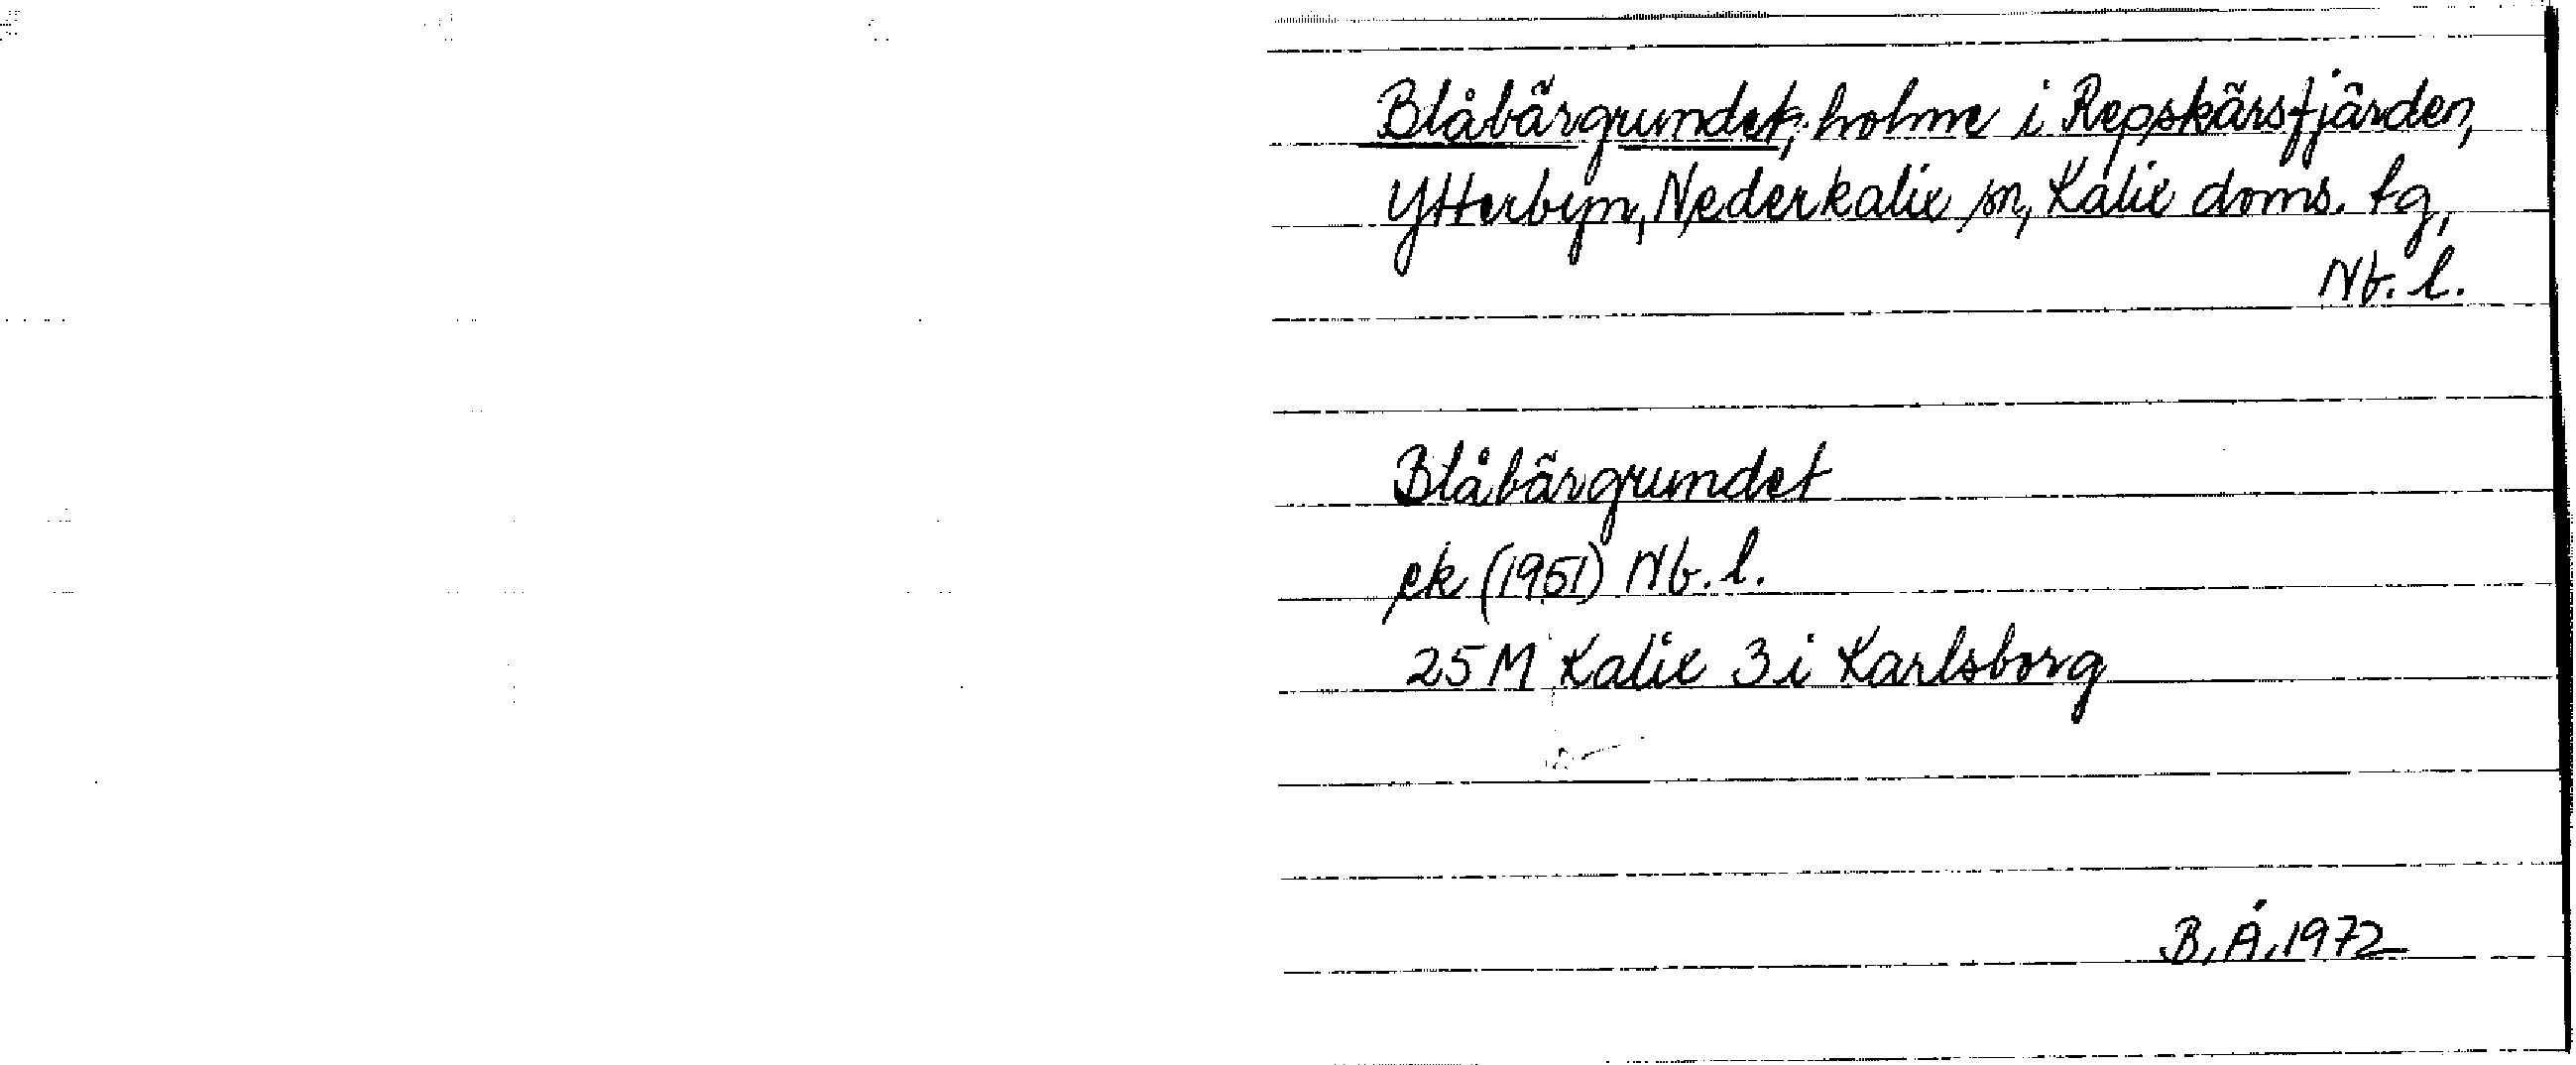 Blåbärgrundet, holme i Repskärsfjärden,
Ytterbyn, Nederkalix sn, Kalix doms. tg,
Nb. l.
Blåbärgrundet
ek (1951) Nb. l.
25 M Kalix 3 i Karlsborg
B. Å. 1972